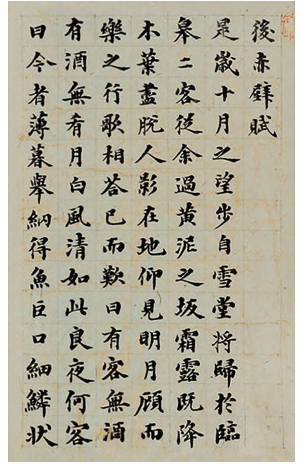 後赤壁賦
是歲十月之望步自雪堂將歸於臨
皋二客從余過黃泥之坂霜露既降
木葉盡脫人影在地仰見明月顧而
樂之行歌相答已而歎曰有客無酒
有酒無肴月白風清如此良夜何客
曰今者薄暮舉網得魚巨口細鱗狀